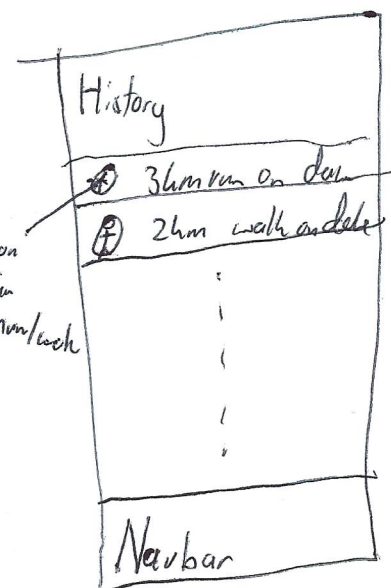 History
3km run on date
2km walk on date
on
run/walk
Navbar